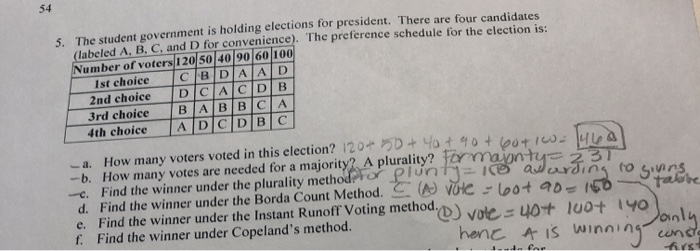 54
5. The student government is holding elections for president. There are four candidates
(labeled A, B, C, and D for convenience). The preference schedule for the election is:
Number of voters 120 50 40 90 60 100
1st choice C B D A A D
2nd choice D C A C D B
3rd choice B A B B C A
4th choice A D C D B C
a. How many voters voted in this election? 120+ 50+ 40+ 90+ 60+ 100= 460
b. How many votes are needed for a majority? A plurality? For majority = 231
c. Find the winner under the plurality method. For plurity = according to giving table
d. Find the winner under the Borda Count Method. (A) vote = 60+ 90= 150
e. Find the winner under the Instant Runoff Voting method. (D) vote = 40+ 100+ 140 only
f. Find the winner under Copeland's method. henc A is winning